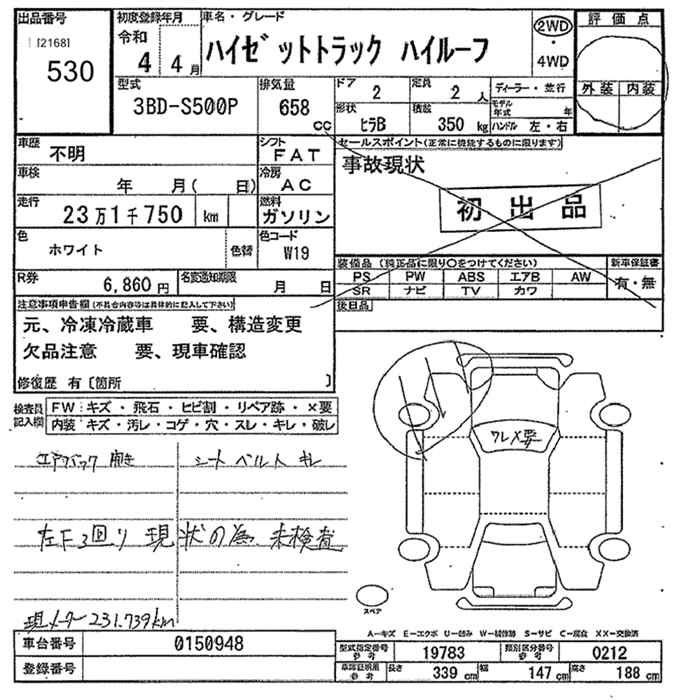 出品番号
[2168]
530
初度登録年月
令和
4 年 4 月
車名・グレード
ハイゼットトラック ハイルーフ
2WD
・
4WD
評価点
外装 内装
型式
3BD-S500P
排気量
658
cc
ドア
2
定員
2 人
形状
ヒラB
積載
350 kg
ディーラー・並行
モデル年式 年
ハンドル 左・右
車歴
不明
シフト
FAT
セールスポイント(正常に機能するものに限ります)
事故現状
初出品
車検
年 月( 日)
冷房
AC
走行
23万1千750 km
燃料
ガソリン
色
ホワイト
色替
色コード
W19
装備品(純正品に限り○をつけてください)
PS PW ABS エアB AW
SR ナビ TV カワ
新車保証書
有・無
R券
6,860円
名変通知期限
月 日
後日品
注意事項申告欄(不具合内容等は具体的に記入して下さい)
元、冷凍冷蔵車 要、構造変更
欠品注意 要、現車確認
修復歴 有〔箇所 〕
検査員記入欄
FW: キズ・飛石・ヒビ割・リペア跡・×要
内装: キズ・汚レ・コゲ・穴・スレ・キレ・破レ
エアバック 開き シートベルト キレ
左F3回り現状の為、未検査
現メーター231,739km
ワレX要
スペア
A-キズ E-エクボ U-凹み W-補修跡 S-サビ C-腐食 XX-交換済
車台番号
0150948
登録番号
型式指定番号
参考
19783
類別区分番号
参考
0212
車庫証明用
参考
長さ
339 cm
幅
147 cm
高さ
188 cm